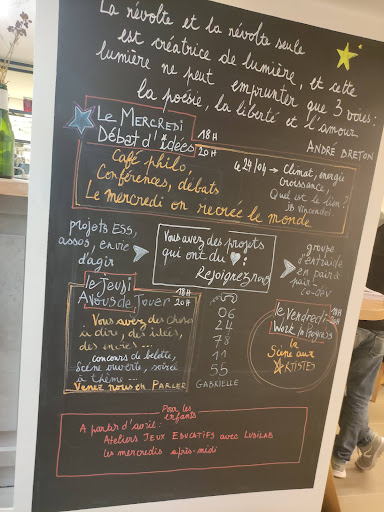 La révolte et la révolte seule
est créatrice de lumière, et cette
lumière ne peut emprunter que 3 voies:
la poésie, la liberté et l'amour.
ANDRÉ BRETON
Le MERCREDI
Débat d'idées
18H
20H
Café philo,
Conférences, débats
Le mercredi on recrée le monde
Le 24/04 → Climat, énergie
Croissance
Quel est le lien ?
JB Vincendet
projets ESS,
assos, envie
d'agir
Vous avez des projets
qui ont du ♥:
Rejoignez nous
groupe
d'entraide
en pair à
pair -
co-dev
le jeudi
A Vous de Jouer
18H
20H
Vous avez des choses
à dire, des idées,
des envies ...
concours de belotte,
Scène ouverte, soirée
à thème ...
VENEZ NOUS EN PARLER
06
24
78
11
55
GABRIELLE
le vendredi
18H
la
Scène aux
ARTISTES
Pour les
enfants
A partir d'avril :
Ateliers JEUX EDUCATIFS avec LUDILAB
les mercredis après-midi